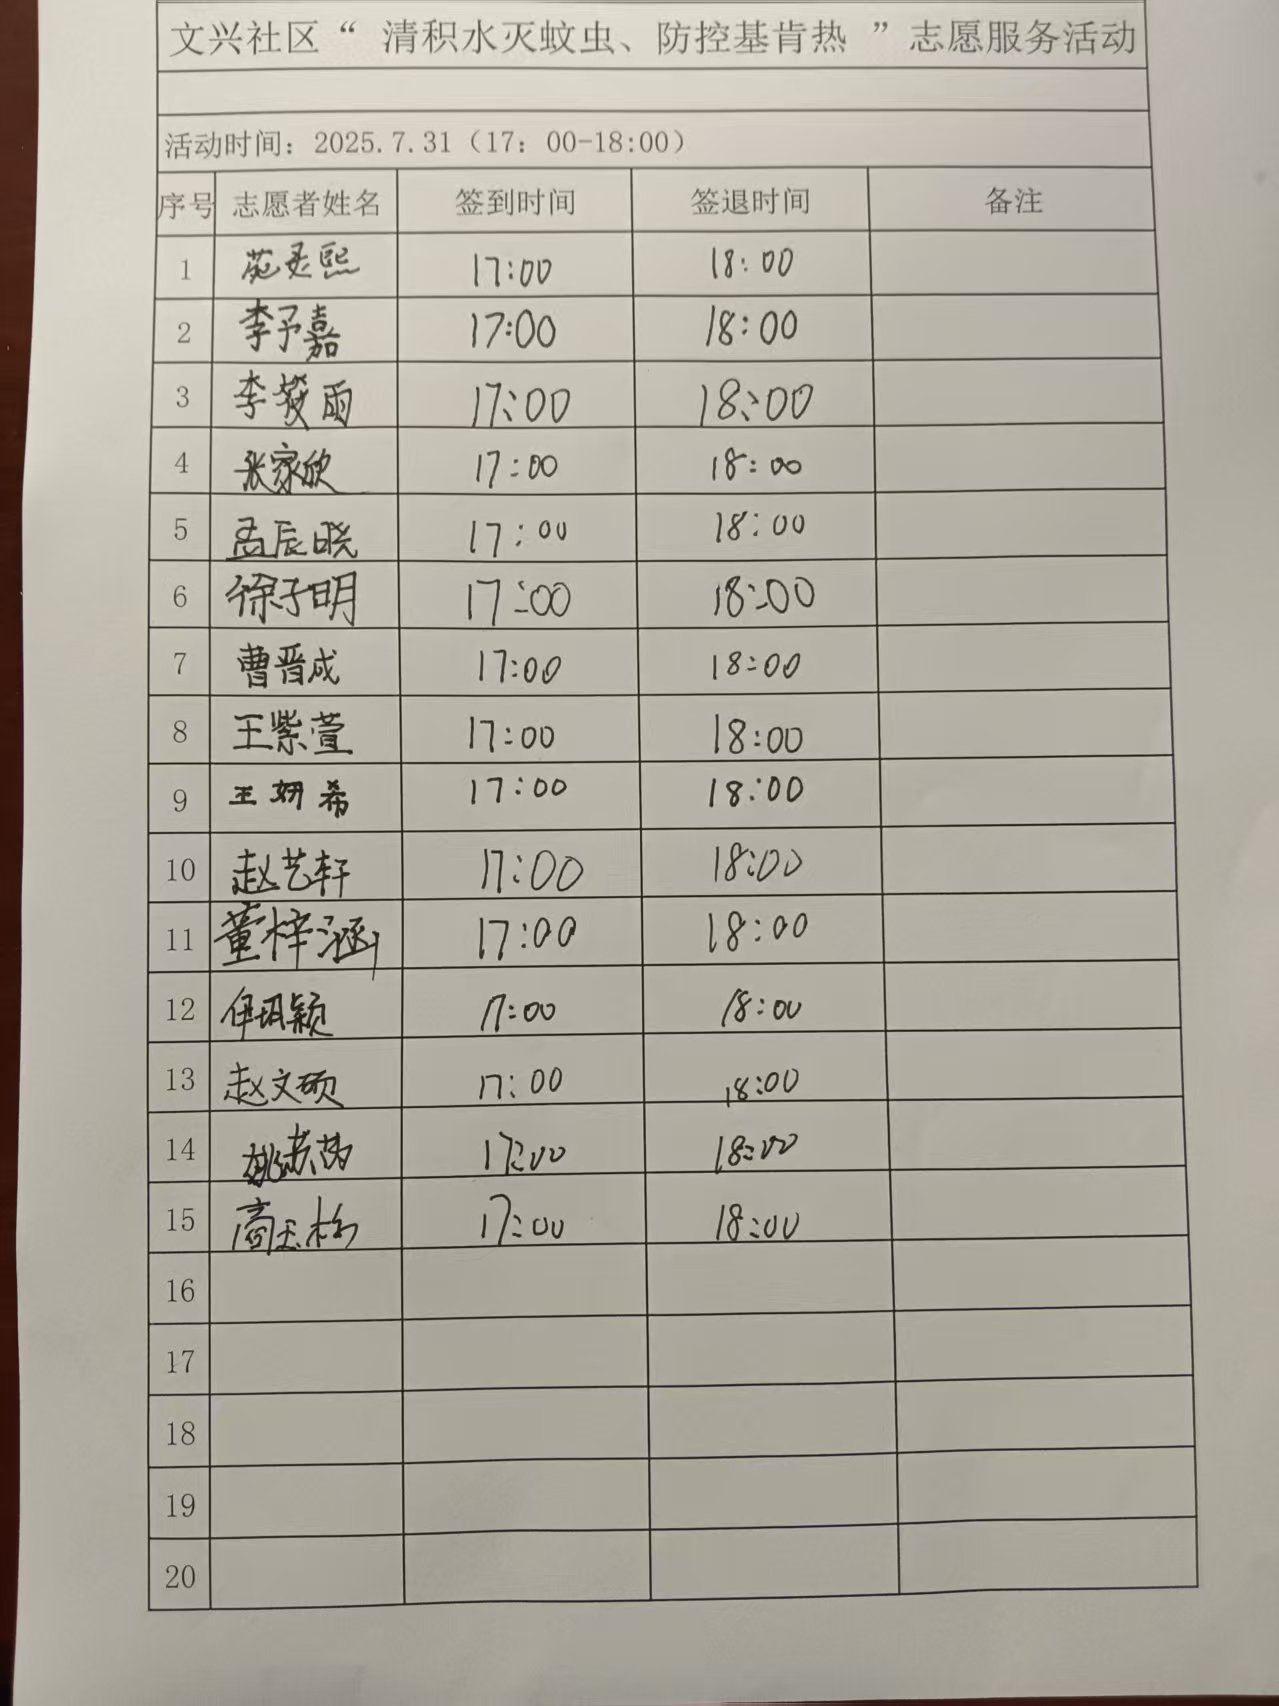 文兴社区“ 清积水灭蚊虫、防控基肯热 ”志愿服务活动
活动时间：2025.7.31（17：00-18:00）
序号 志愿者姓名 签到时间 签退时间 备注
1 苑灵熙 17:00 18:00
2 李予嘉 17:00 18:00
3 李 雨 17:00 18:00
4 张家欣 17:00 18:00
5 孟辰晓 17:00 18:00
6 徐子明 17:00 18:00
7 曹晋成 17:00 18:00
8 王紫萱 17:00 18:00
9 王妍希 17:00 18:00
10 赵艺轩 17:00 18:00
11 董梓涵 17:00 18:00
12 伊 颖 17:00 18:00
13 赵文硕 17:00 18:00
14 姚苏芮 17:00 18:00
15 高玉 17:00 18:00
16
17
18
19
20